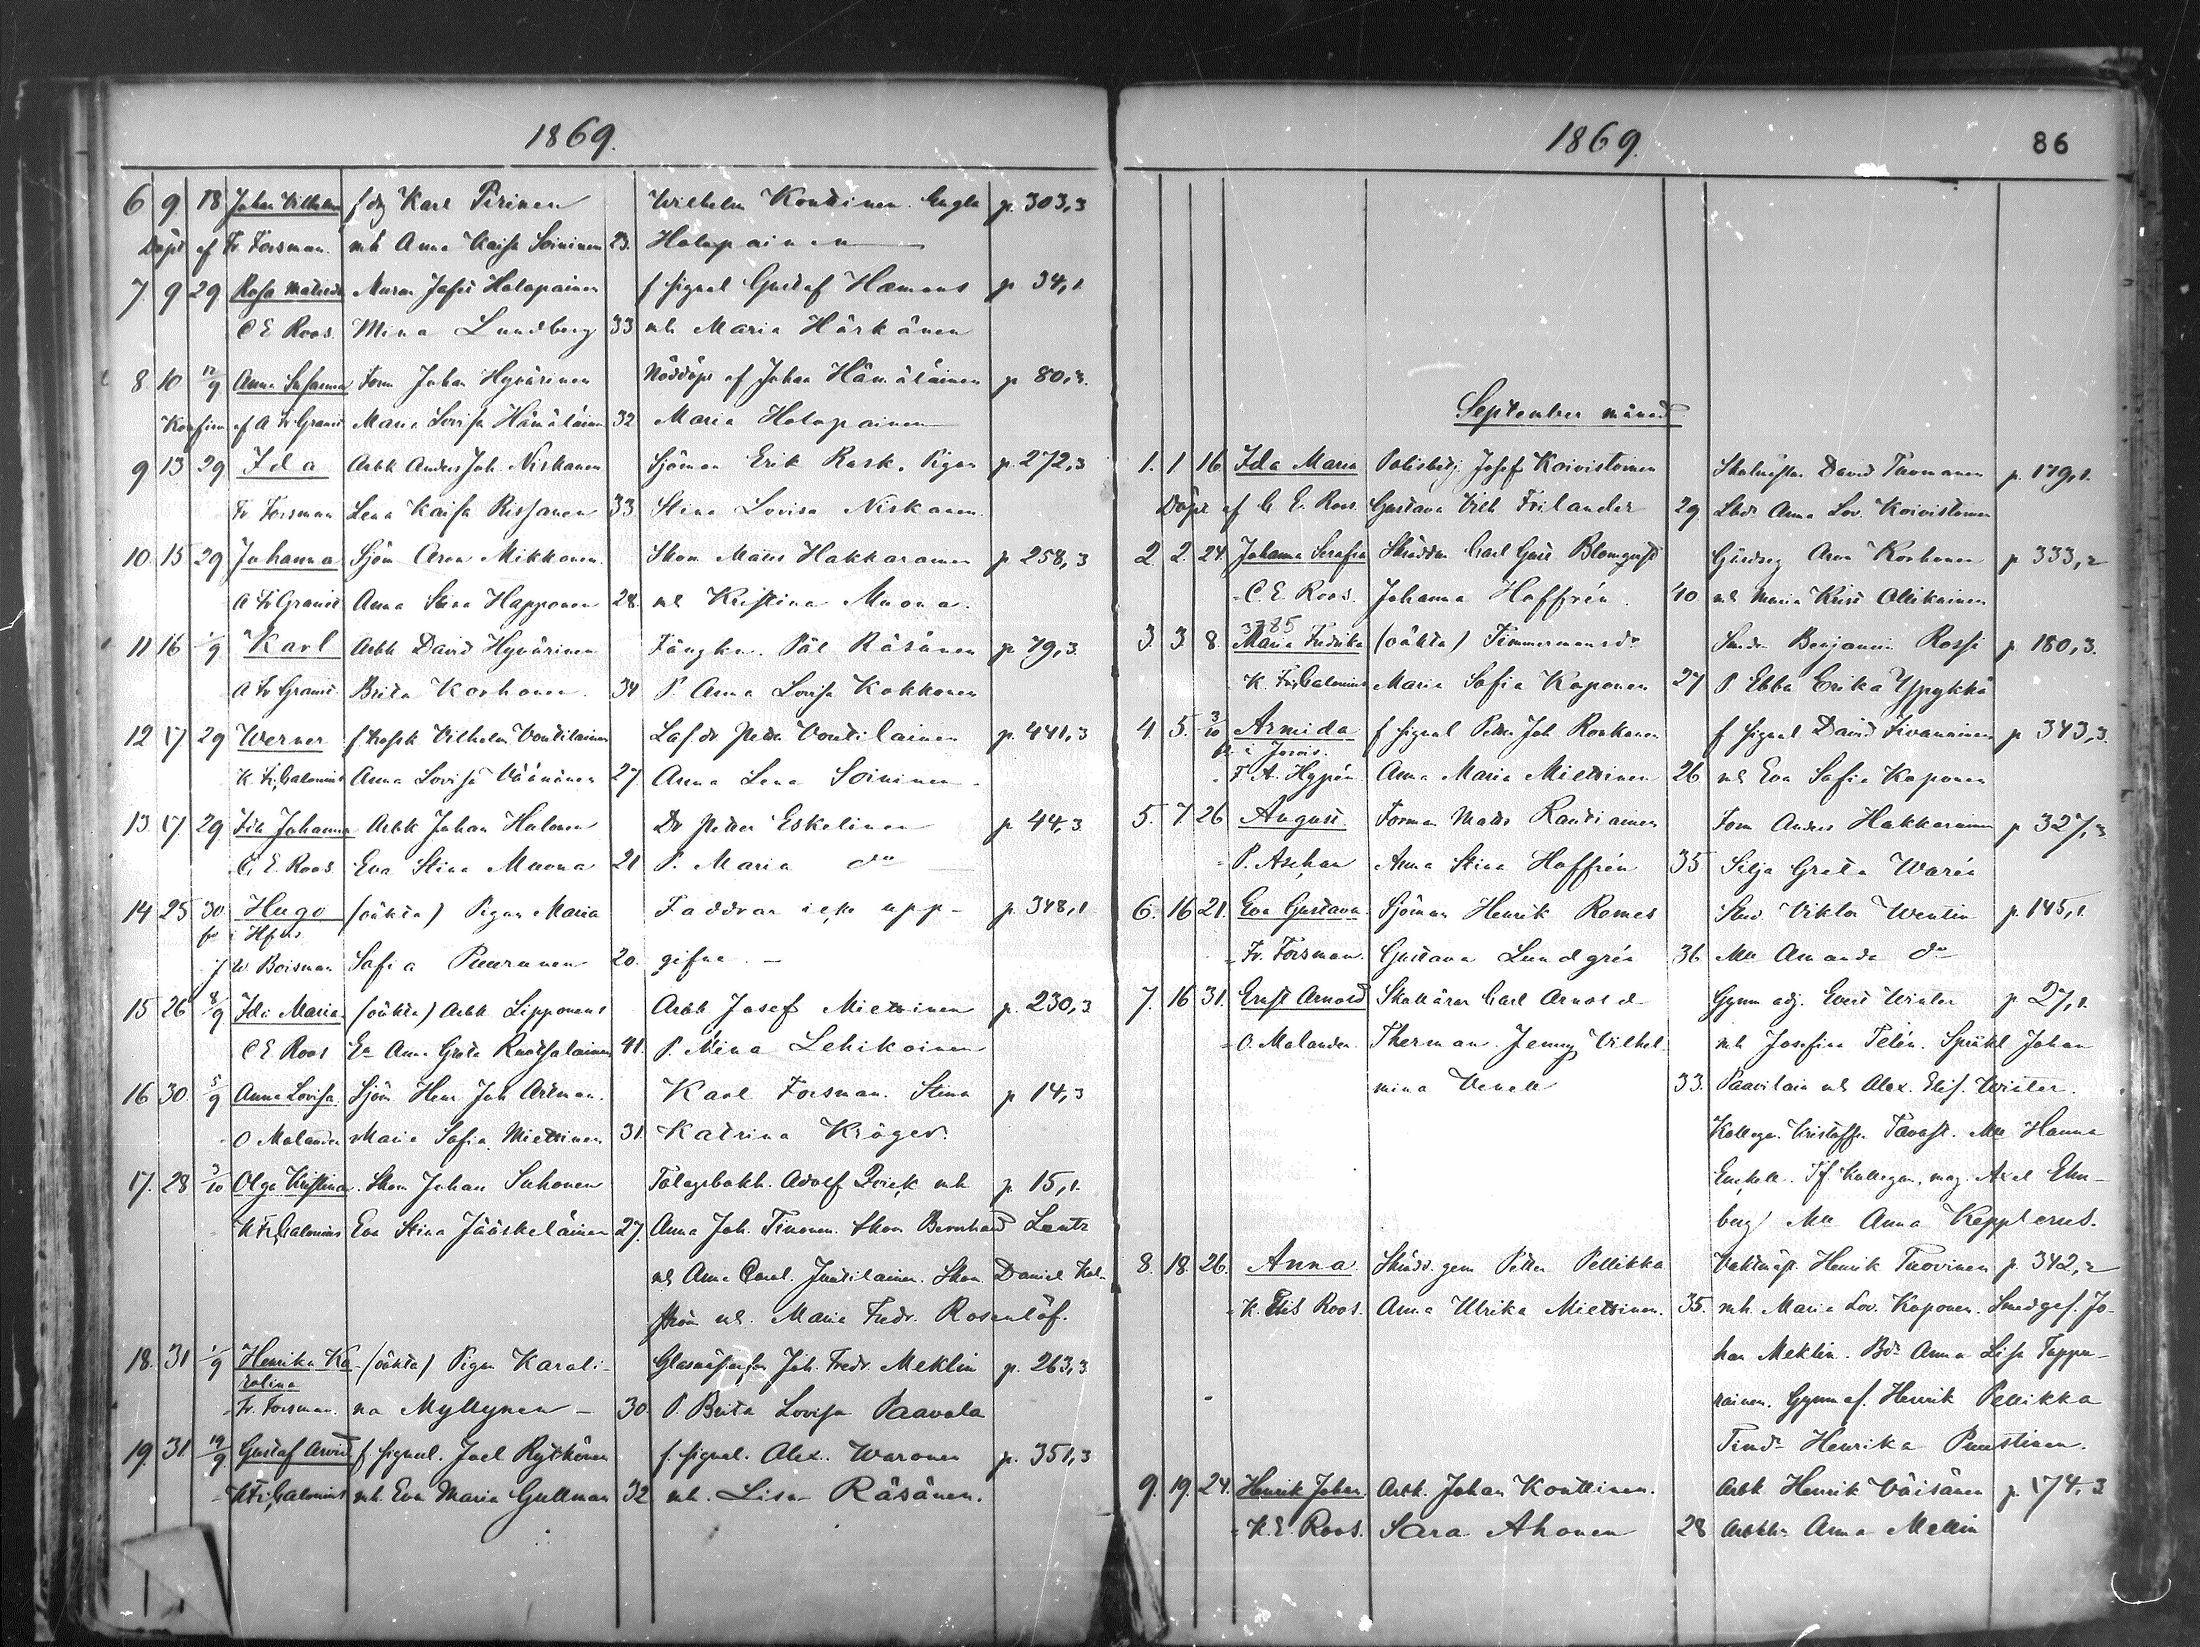 1869.
6 9 18 Johan Vilhelm f dg Karl Pirinen Wilhelm Konttinen. Engla p. 303,3
Döpt af Fr Forsman. mh Anna Kaisa Soininen 23. Holopainen
7. 9 29 Rosa Matilda Muraren Josef Holopainen f signal Gustaf Hämens p. 34,1.
C E Roos. Mina Lundberg 33 mh Maria Härkönen
8 10 12/9 Anna Susanna Form Johan Hyvärinen Nöddöpt af Johan Hämäläinen p 80,3.
Konfirm af A Fr Granit Maria Lovisa Hämäläinen 32 Maria Holopainen
9 13 29 Ida Arbk Anders Joh. Niskanen Sjöman Erik Rask. Pigan p. 272,3
Fr Forsman Lena Kaisa Rissanen 33 Stina Lovisa Niskanen.
10. 15 29 Johanna Sjöm Aron Mikkonen. Skom Matts Hakkarainen p. 258,3
A Fr Granit Anna Stina Happonen 28. mh Kristina Muona.
11 16 1/9 Karl Arbk David Hyvärinen Fångkn. Pål Räsänen p. 79,3.
A Fr Granit. Brita Korhonen. 34 P. Anna Lovisa Kokkonen
12 17 29 Werner Vilhelm Voutilainen Petter Voutilainen p. 441,3
K Fr Calonius Anna Lovisa Väänänen 27. Anna Lena Soininen.
13. 17 29. Ida Johanna Arbk Johan Halonen Dr Petter Eskelinen p 44,3
C. E. Roos. Eva Stina Muona 21 P. Maria do
14 25 30 Hugo (oäkta) Pigan Maria Faddrar icke upp- p. 348,1
för i Hfors.
W Boisman Sofia Puurunen 20. gifne. –
15 26 8/9 Ida Maria (oäkta) Arbk Lipponens Arbk Josef Miettinen p. 230,3
C E Roos En Anna Greta Ruotsalainen 41. P. Mina Lehikoinen
16 30. 5/9 Anna Lovisa. Sjöm Henr. Joh Artman. Karl Forsman. Stina p 14,3
O Malander Maria Sofia Miettinen 31. Katrina Kröger.
17. 28 3/10 Olga Kristina. Skom Johan Suhonen Adolf mh p. 15,1.
K Fr Calonius Eva Stina Jääskeläinen 27. Anna Joh. Timonen. Skom Bernhard Lentz
mh Anna Carol. Juutilainen. Skom Daniel Holm
ström mh. Maria Fredr. Rosenlöf.
18. 31 1/9 Henrika Ka- (oäkta) Pigan Karoli- Joh. Fredr. Meklin p. 263,3
rolina
Fr. Forsman. na Myllynen – 30 P. Brita Lovisa Paavola
19. 31 19/9 Gustaf Arvid f signal. Joel Rytkönen f. signal. Alex. Waronen p. 351,3
K Fr Calonius mh. Eva Maria Gullman 32 mh. Lisa Räsänen.
1869. 86
September månad
1. 1 16 Ida Maria Polisbetj Josef Koivistoinen David Turunen p. 179,1.
Döpt af C. E. Roos. Gustava Vilh Frilander 29. Anna Lov. Koivistoinen
2. 2. 24. Johanna Serafia Skräddar Carl Gust Blomqvist Aron Korhonen p 333,2
C. E. Roos. Johanna Hoffrén. 40 mh Maria Krist Ollikainen
3785
3. 3 8 Maria Fredrika (oäkta) Timmermansdr Benjamin Rossi p 180,3.
K. Fr Calonius Maria Sofia Koponen 27 P Ebba Erika Ypykkä
4 5. 3/10 Armida f signal Petter Joh Ronkanen f signal David Tirronen p 343,3.
för i Jorois.
F. A. Hypén Anna Maria Miettinen 26 mh Eva Sofia Koponen
5. 7 26 August Forman Matts Rautiainen Form Anders Hakkarainen p 327,3
P. Aschan Anna Stina Hoffrén 35 Silja Greta Warén
6. 16 21. Eva Gustava Sjöman Henrik Romes Stud. Viktor Wentin p. 145,1.
Fr. Forsman. Gustava Lundgrén 36 Mll Amanda do
7. 16 31. Ernst Arnold Carl Arnold Gymn adj. Winter p. 27,1.
O. Malander Therman. Jenny Vilhel- mh Josefina Telén. Johan
mina Venell 33. mh Alex. Elis. Winter.
Kollegan. Kristoffer Tavast. Mll Hanna
Enehelm. Tf Kollegan, mag. Axel Ehn-
berg Mll Anna Kepplerus.
8. 18. 26. Anna gem Petter Pellikka Vaktmäst. Henrik Tuovinen p. 342,2
K. Elis Roos. Anna Ulrika Miettinen. 35. mh. Maria Lov. Koponen. Smedges. Jo-
han Meklin. Anna Lisa Tappu-
rainen. Gymn el. Henrik Pellikka
Henrika Puustinen.
9. 19. 24. Henrik Johan Arbk. Johan Konttinen. Arbk Henrik Väisänen p. 174,3
K. E. Roos. Sara Ahonen 28 Anna Mellin